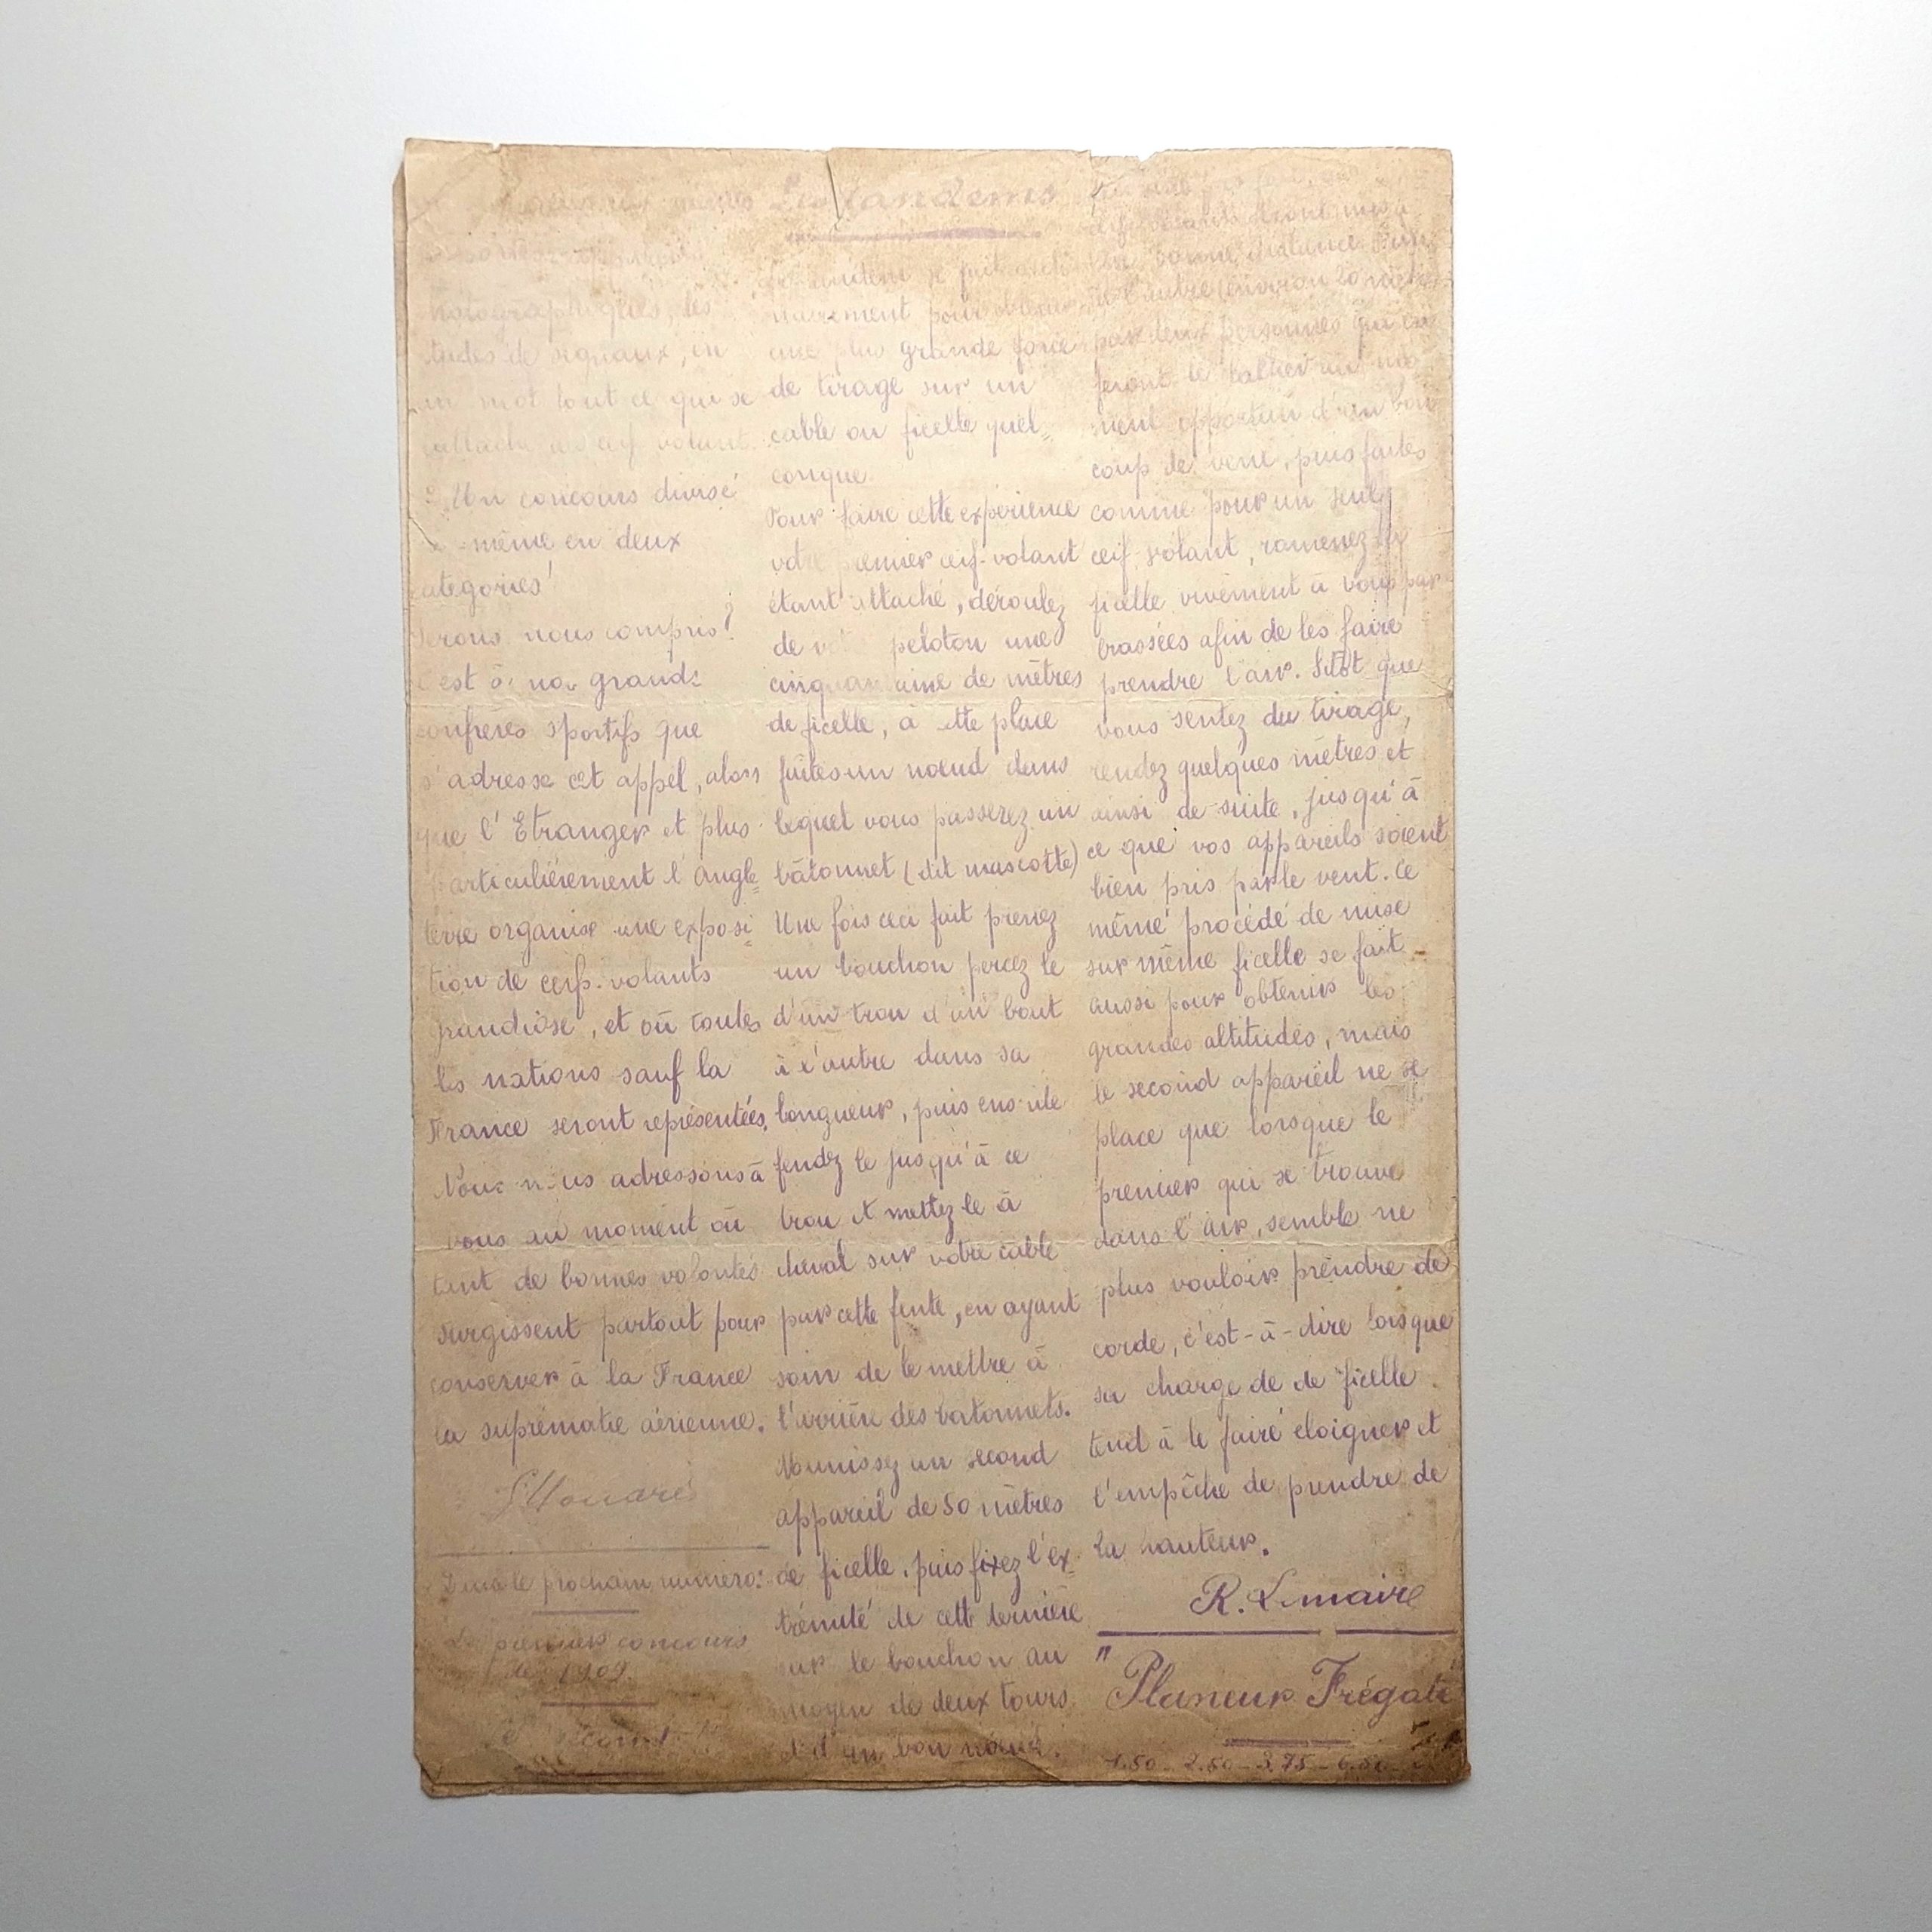 hotographiques, les
tudes de signaux, en
un mot tout ce qui se
rattache au cerf volant.
2º Un concours divisé
même en deux
categories!
Serons nous compris?
C'est à nos grands
confrères sportifs que
s'adresse cet appel, alors
que l'Etranger et plus
particulièrement l'Angle=
terre organise une exposi=
tion de cerfs-volants
grandiose, et où toutes
les nations sauf la
France seront représentées.
Nous nous adressons à
vous au moment où
tant de bonnes volontés
surgissent partout pour
conserver à la France
la suprématie aérienne.
Dans le prochain numéro:
Le premier concours
de 1909.
Les Tandems
se fait
pour obtenir
une plus grande force
de tirage sur un
cable ou ficelle quel=
conque.
Pour faire cette expérience
votre premier cerf-volant
étant attaché, déroulez
de votre peloton une
cinquantaine de mètres
de ficelle, à cette place
faites un nœud dans
lequel vous passerez un
bâtonnet (dit mascotte)
Une fois ceci fait prenez
un bouchon percez le
d'un trou d'un bout
à l'autre dans sa
longueur, puis ensuite
fendez le jusqu'à ce
trou et mettez le à
cheval sur votre cable
par cette fente, en ayant
soin de le mettre à
l'arrière des batonnets.
Munissez un second
appareil de 50 mètres
de ficelle, puis fixez l'ex=
trémité de cette dernière
sur le bouchon au
moyen de deux tours
et d'un bon nœud.
bonne distance l'un
de l'autre (environ 20 mètres)
par deux personnes qui
feront le au mo
ment opportun d'un bon
coup de vent, puis faites
comme pour un seul
cerf-volant, ramenez la
ficelle vivement à vous par
brassées afin de les faire
prendre l'air. Sitôt que
vous sentez du tirage,
rendez quelques mètres et
ainsi de suite, jusqu'à
ce que vos appareils soient
bien pris par le vent. Ce
même procédé de mise
sur même ficelle se fait
aussi pour obtenir les
grandes altitudes, mais
le second appareil ne se
place que lorsque le
premier qui se trouve
dans l'air, semble ne
plus vouloir prendre de
corde, c'est-à-dire lorsque
sa charge de de ficelle
tend à le faire eloigner et
l'empêche de prendre de
la hauteur.
R. Lemaire
"Planeur Frégate
1.50 - 2.50 - 3.75 - 6.50